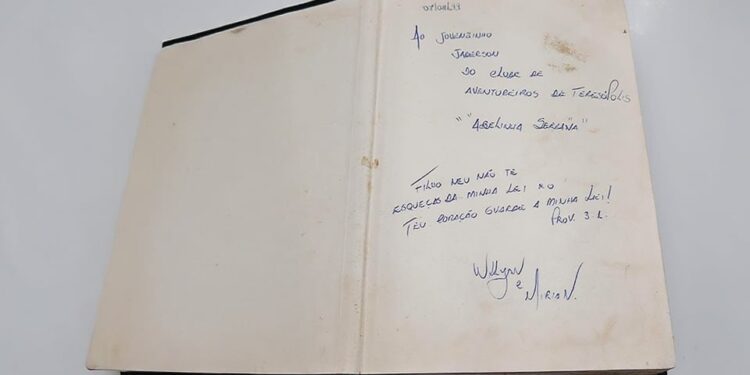 Ao Jovenzinho
Jaderson
do clube de
Aventureiros de Teresópolis
"Abelinha Serrana"
Filho meu não te
esqueças da minha lei e o
teu coração guarde a minha lei!
Prov. 3:1.
e Mirian.